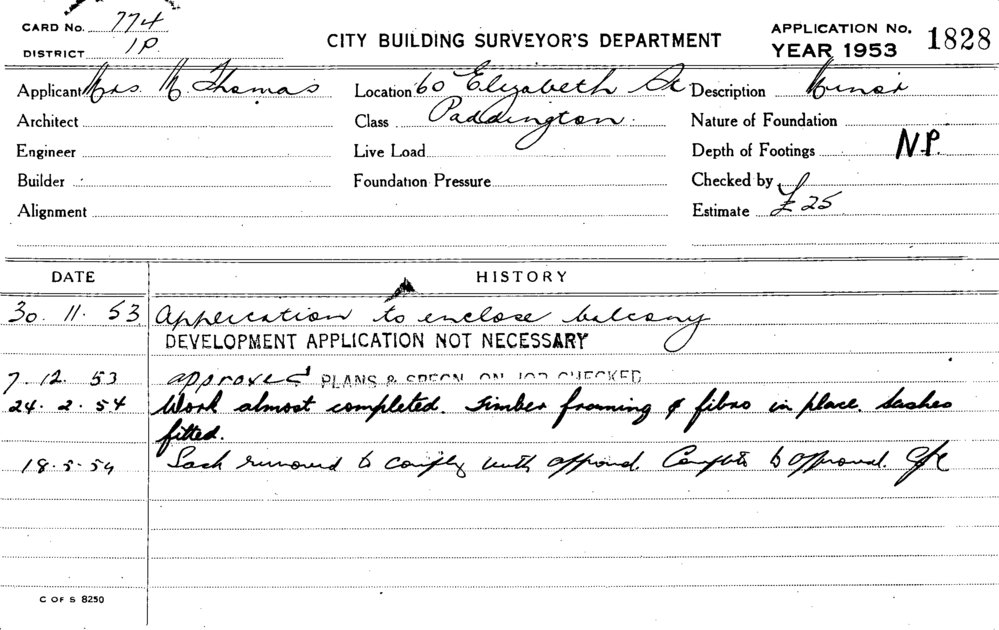 CARD No. 774
DISTRICT 1P.
CITY BUILDING SURVEYOR'S DEPARTMENT
APPLICATION No. 1828
YEAR 1953
Applicant Mrs. M. Thomas
Location 60 Elizabeth St
Description Minor
Architect
Class Paddington.
Nature of Foundation
Engineer
Live Load
Depth of Footings N.P.
Builder
Foundation Pressure
Checked by
Alignment
Estimate £25
DATE HISTORY
30. 11. 53 Application to enclose balcony
DEVELOPMENT APPLICATION NOT NECESSARY
7. 12. 53 approved PLANS & SPECN. ON JOB CHECKED
24. 2. 54 Work almost completed. Timber framing & fibro in place. Sashes
fitted.
18. 5. 54 Sash removed to comply with approval. Complete to approval.
C OF S 8250